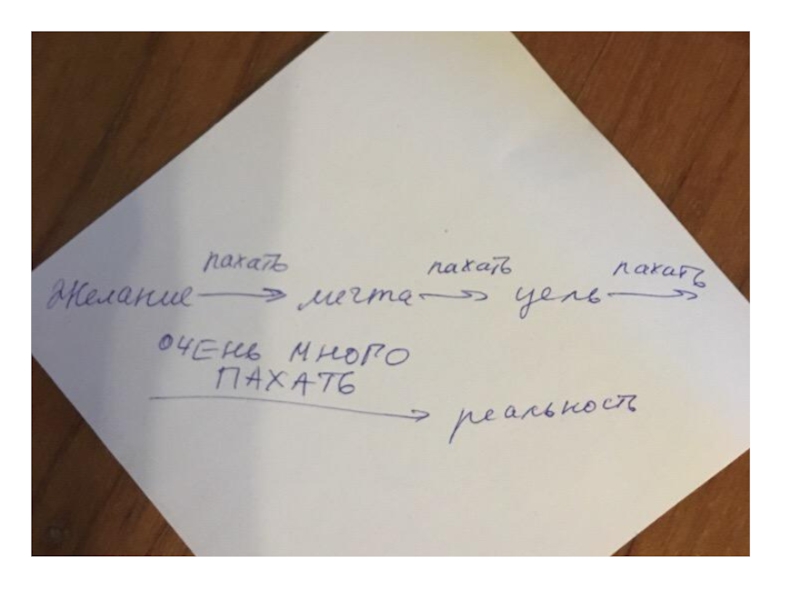 пахать пахать пахать
Желание → мечта → цель →
ОЧЕНЬ МНОГО
ПАХАТЬ
→ реальность